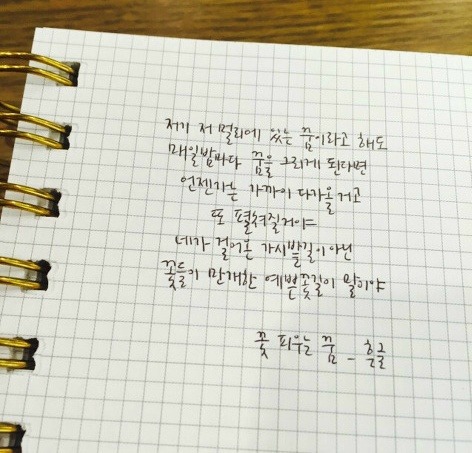 저기 저 멀리에 있는 꿈이라고 해도
매일밤마다 꿈을 그리게 된다면
언젠가는 가까이 다가올 거고
또 펼쳐질거야
네가 걸어온 가시밭길이 아닌
꽃들이 만개한 예쁜 꽃길이 말이야
꽃 피우는 꿈 - 흔글